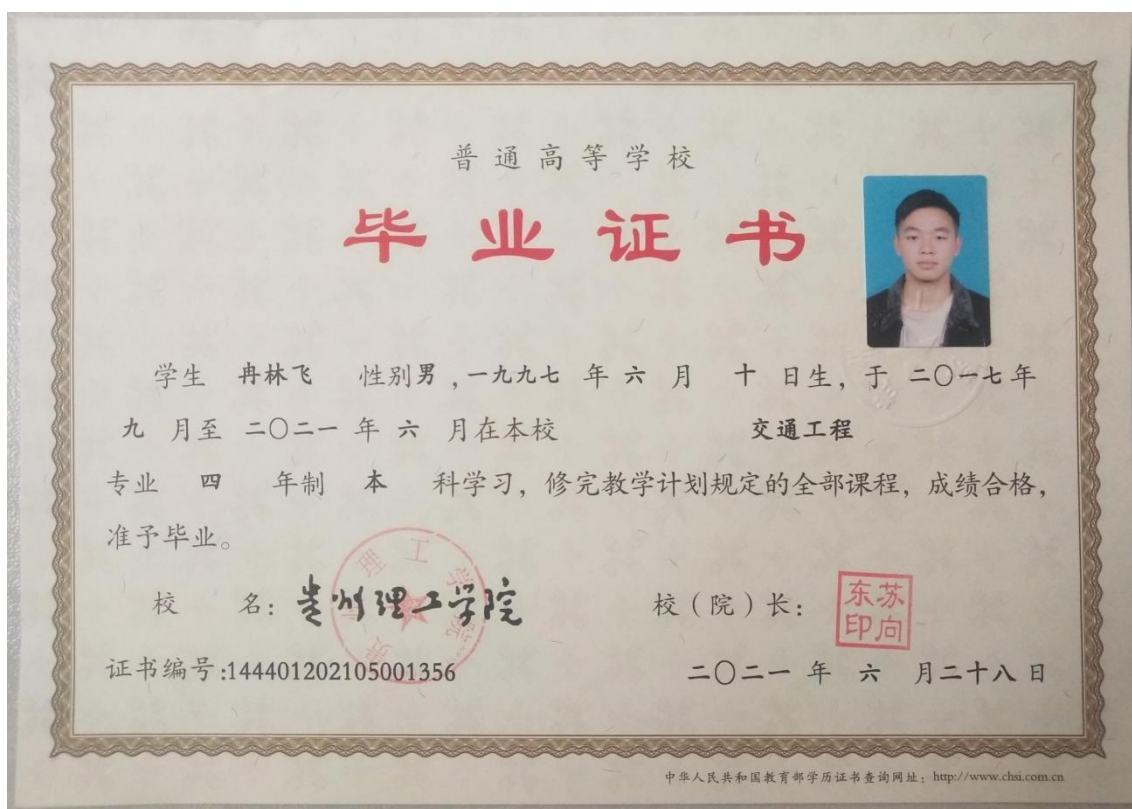 普通高等学校
毕业证书
学生 冉林飞 性别男,一九九七 年 六 月 十 日生,于 二〇一七年
九 月至 二〇二一 年 六 月在本校 交通工程
专业 四 年制 本 科学习,修完教学计划规定的全部课程,成绩合格,
准予毕业。
校 名:贵州理工学院 校(院)长:苏向东印
证书编号:144401202105001356 二〇二一 年 六 月二十八日
中华人民共和国教育部学历证书查询网址:http://www.chsi.com.cn